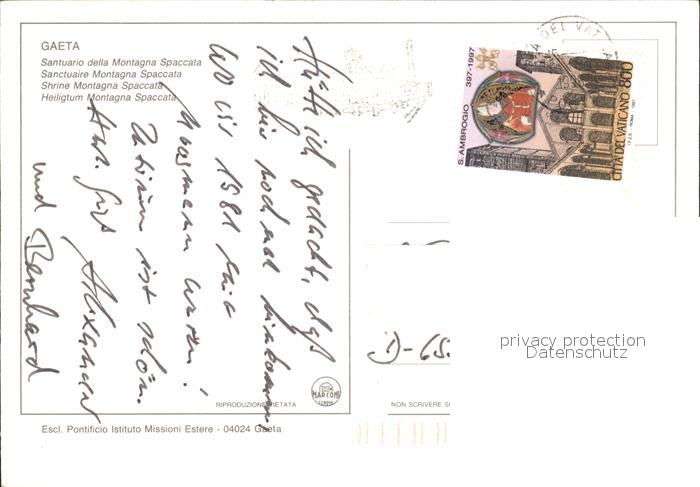 GAETA
Santuario della Montagna Spaccata
Sanctuaire Montagna Spaccata
Shrine Montagna Spaccata
Heiligtum Montagna Spaccata
Hätt ich gedacht, daß
ich hier noch mal hinkomme,
wo wir 1981 mit
waren!
ist schön.
Alexander
und Bernhard
S. AMBROGIO 397-1997
CITTÀ DEL VATICANO 800
I.P.Z.S. - ROMA - 1997
DEL VAT
D-65
privacy protection
Datenschutz
RIPRODUZIONE VIETATA
MARCONI
GENOVA
NON SCRIVERE S
Escl. Pontificio Istituto Missioni Estere - 04024 Gaeta